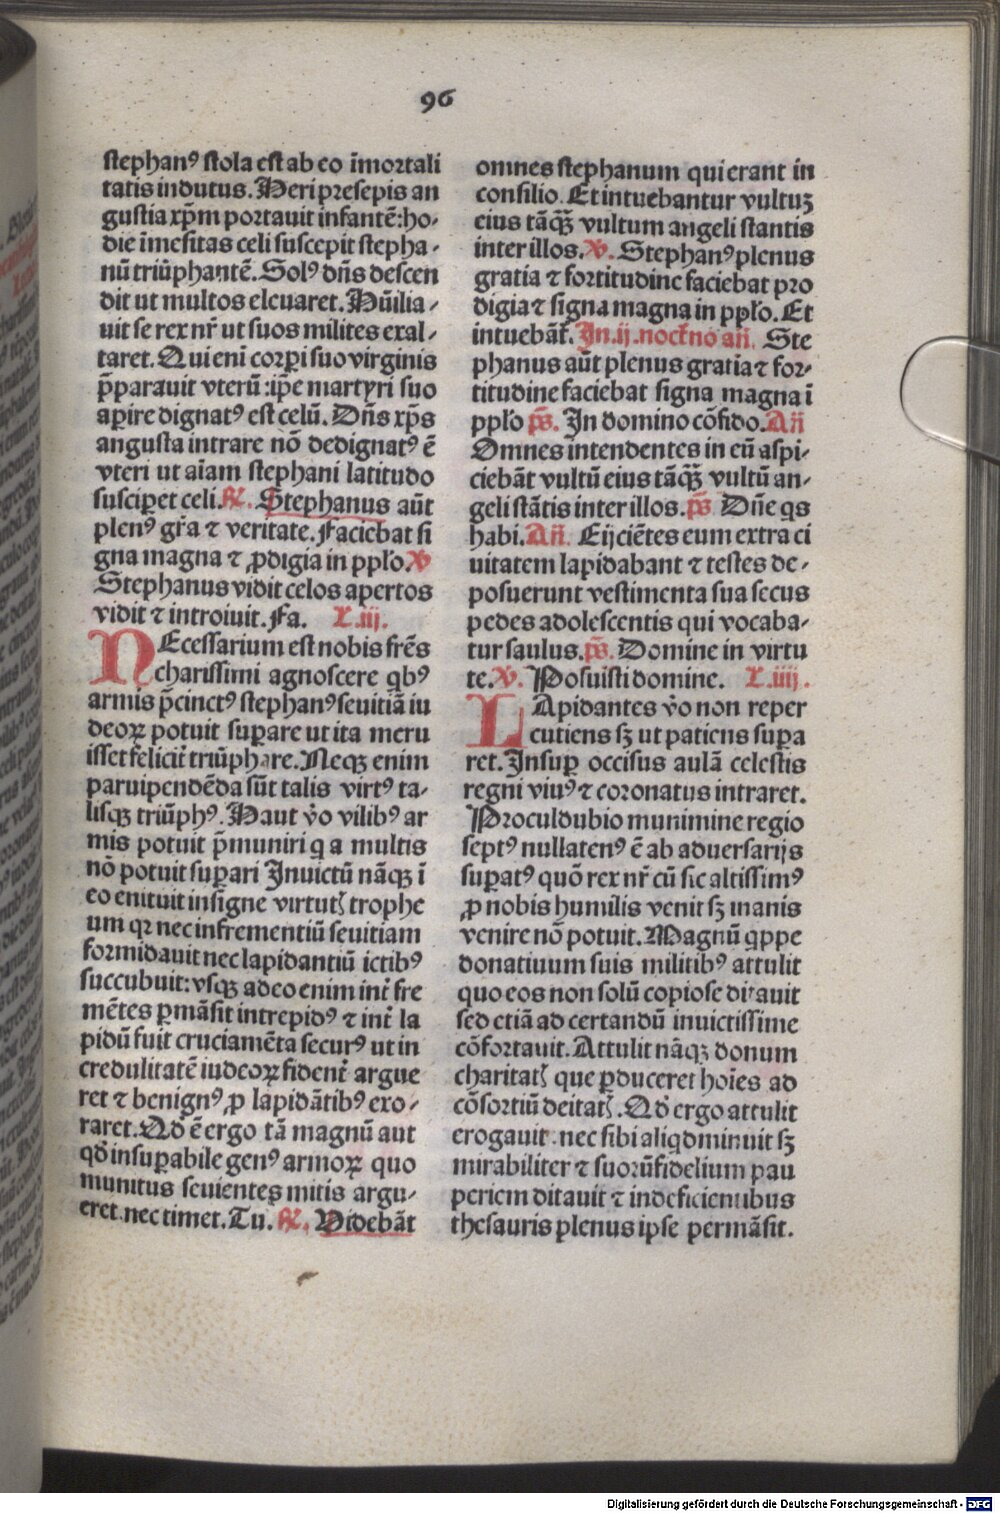 96
stephanꝰ stola est ab eo īmortali
tatis indutus. Heri presepis an
gustia xp̄m portauit infantē: ho-
die īmēsitas celi suscepit stepha-
nū triūphantē. Solꝰ dn̄s descen
dit ut multos eleuaret. Hūilia-
uit se rex nr̄ ut suos milites exal-
taret. Qui eni corꝑi suo virginis
p̄parauit vterū: ip̄e martyri suo
aperire dignatꝰ est celū. Dn̄s xp̄s
angusta intrare nō dedignatꝰ ē
vteri ut aīam stephani latitudo
susciperet celi. ℟. Stephanus aūt
plenꝰ gr̄a ⁊ veritate. Faciebat si
gna magna ⁊ ꝓdigia in pplo. ℣
Stephanus vidit celos apertos
vidit ⁊ introiuit. Fa. L. iij.
NEcessarium est nobis frēs
charissimi agnoscere qbꝰ
armis p̄cinctꝰ stephanꝰ seuitiā iu
deoꝝ potuit suꝑare ut ita meru
isset felicit̄ triūphare. Neqꝫ enim
paruipendēda sūt talis virtꝰ ta-
lisqꝫ triūphꝰ. Haut v̄o vilibꝰ ar
mis potuit p̄muniri q a multis
nō potuit suꝑari Inuictū nāqꝫ ī
eo enituit insigne virtutꝭ trophe
um qꝛ nec infrementiū seuitiam
formidauit nec lapidantiū ictibꝰ
succubuit: vsqꝫ adeo enim int̄ fre
mētes ꝑmāsit intrepidꝰ ⁊ int̄ la
pidū fuit cruciamēta securꝰ ut in
credulitatē iudeoꝝ fident̄ argue
ret ⁊ benignꝰ ꝓ lapidātibꝰ exo-
raret. Qd̄ ē ergo tā magnū aut
qd̄ insuꝑabile genꝰ armoꝝ quo
munitus seuientes mitis argu-
eret nec timet. Tu. ℟. Videbāt
omnes stephanum qui erant in
consilio. Et intuebantur vultuꝫ
eius tāqꝫ̄ vultum angeli stantis
inter illos. ℣. Stephanꝰ plenus
gratia ⁊ fortitudine faciebat pro
digia ⁊ signa magna in pplo. Et
intuebāt̄. In .ij. noct̄no an̄. Ste
phanus aūt plenus gratia ⁊ for-
titudine faciebat signa magna ī
pplo ps̄. In domino cōfido. An̄
Omnes intendentes in eū aspi-
ciebāt vultū eius tāqꝫ̄ vultū an-
geli stātis inter illos. ps̄ Dn̄e qs
habi. An̄. Eijciētes eum extra ci
uitatem lapidabant ⁊ testes de-
posuerunt vestimenta sua secus
pedes adolescentis qui vocaba-
tur saulus. ps̄. Domine in virtu
te. ℣. Posuisti domine. L. iiij.
LApidantes v̄o non reper
cutiens sꝫ ut patiens suꝑa
ret. Insuꝑ occisus aulā celestis
regni viuꝰ ⁊ coronatus intraret.
Proculdubio munimine regio
septꝰ nullatenꝰ ē ab aduersarijs
suꝑatꝰ quō rex nr̄ cū sic altissimꝰ
ꝓ nobis humilis venit sꝫ inanis
venire nō potuit. Magnū q̄ppe
donatiuum suis militibꝰ attulit
quo eos non solū copiose ditauit
sed etiā ad certandū inuictissime
cōfortauit. Attulit nāqꝫ donum
charitatꝭ que ꝑduceret hoīes ad
cōsortiū deitatꝭ. Qd̄ ergo attulit
erogauit. nec sibi aliqd minuit sꝫ
mirabiliter ⁊ suorū fidelium pau
periem ditauit ⁊ indeficientibus
thesauris plenus ipse permāsit.
Digitalisierung gefördert durch die Deutsche Forschungsgemeinschaft - DFG